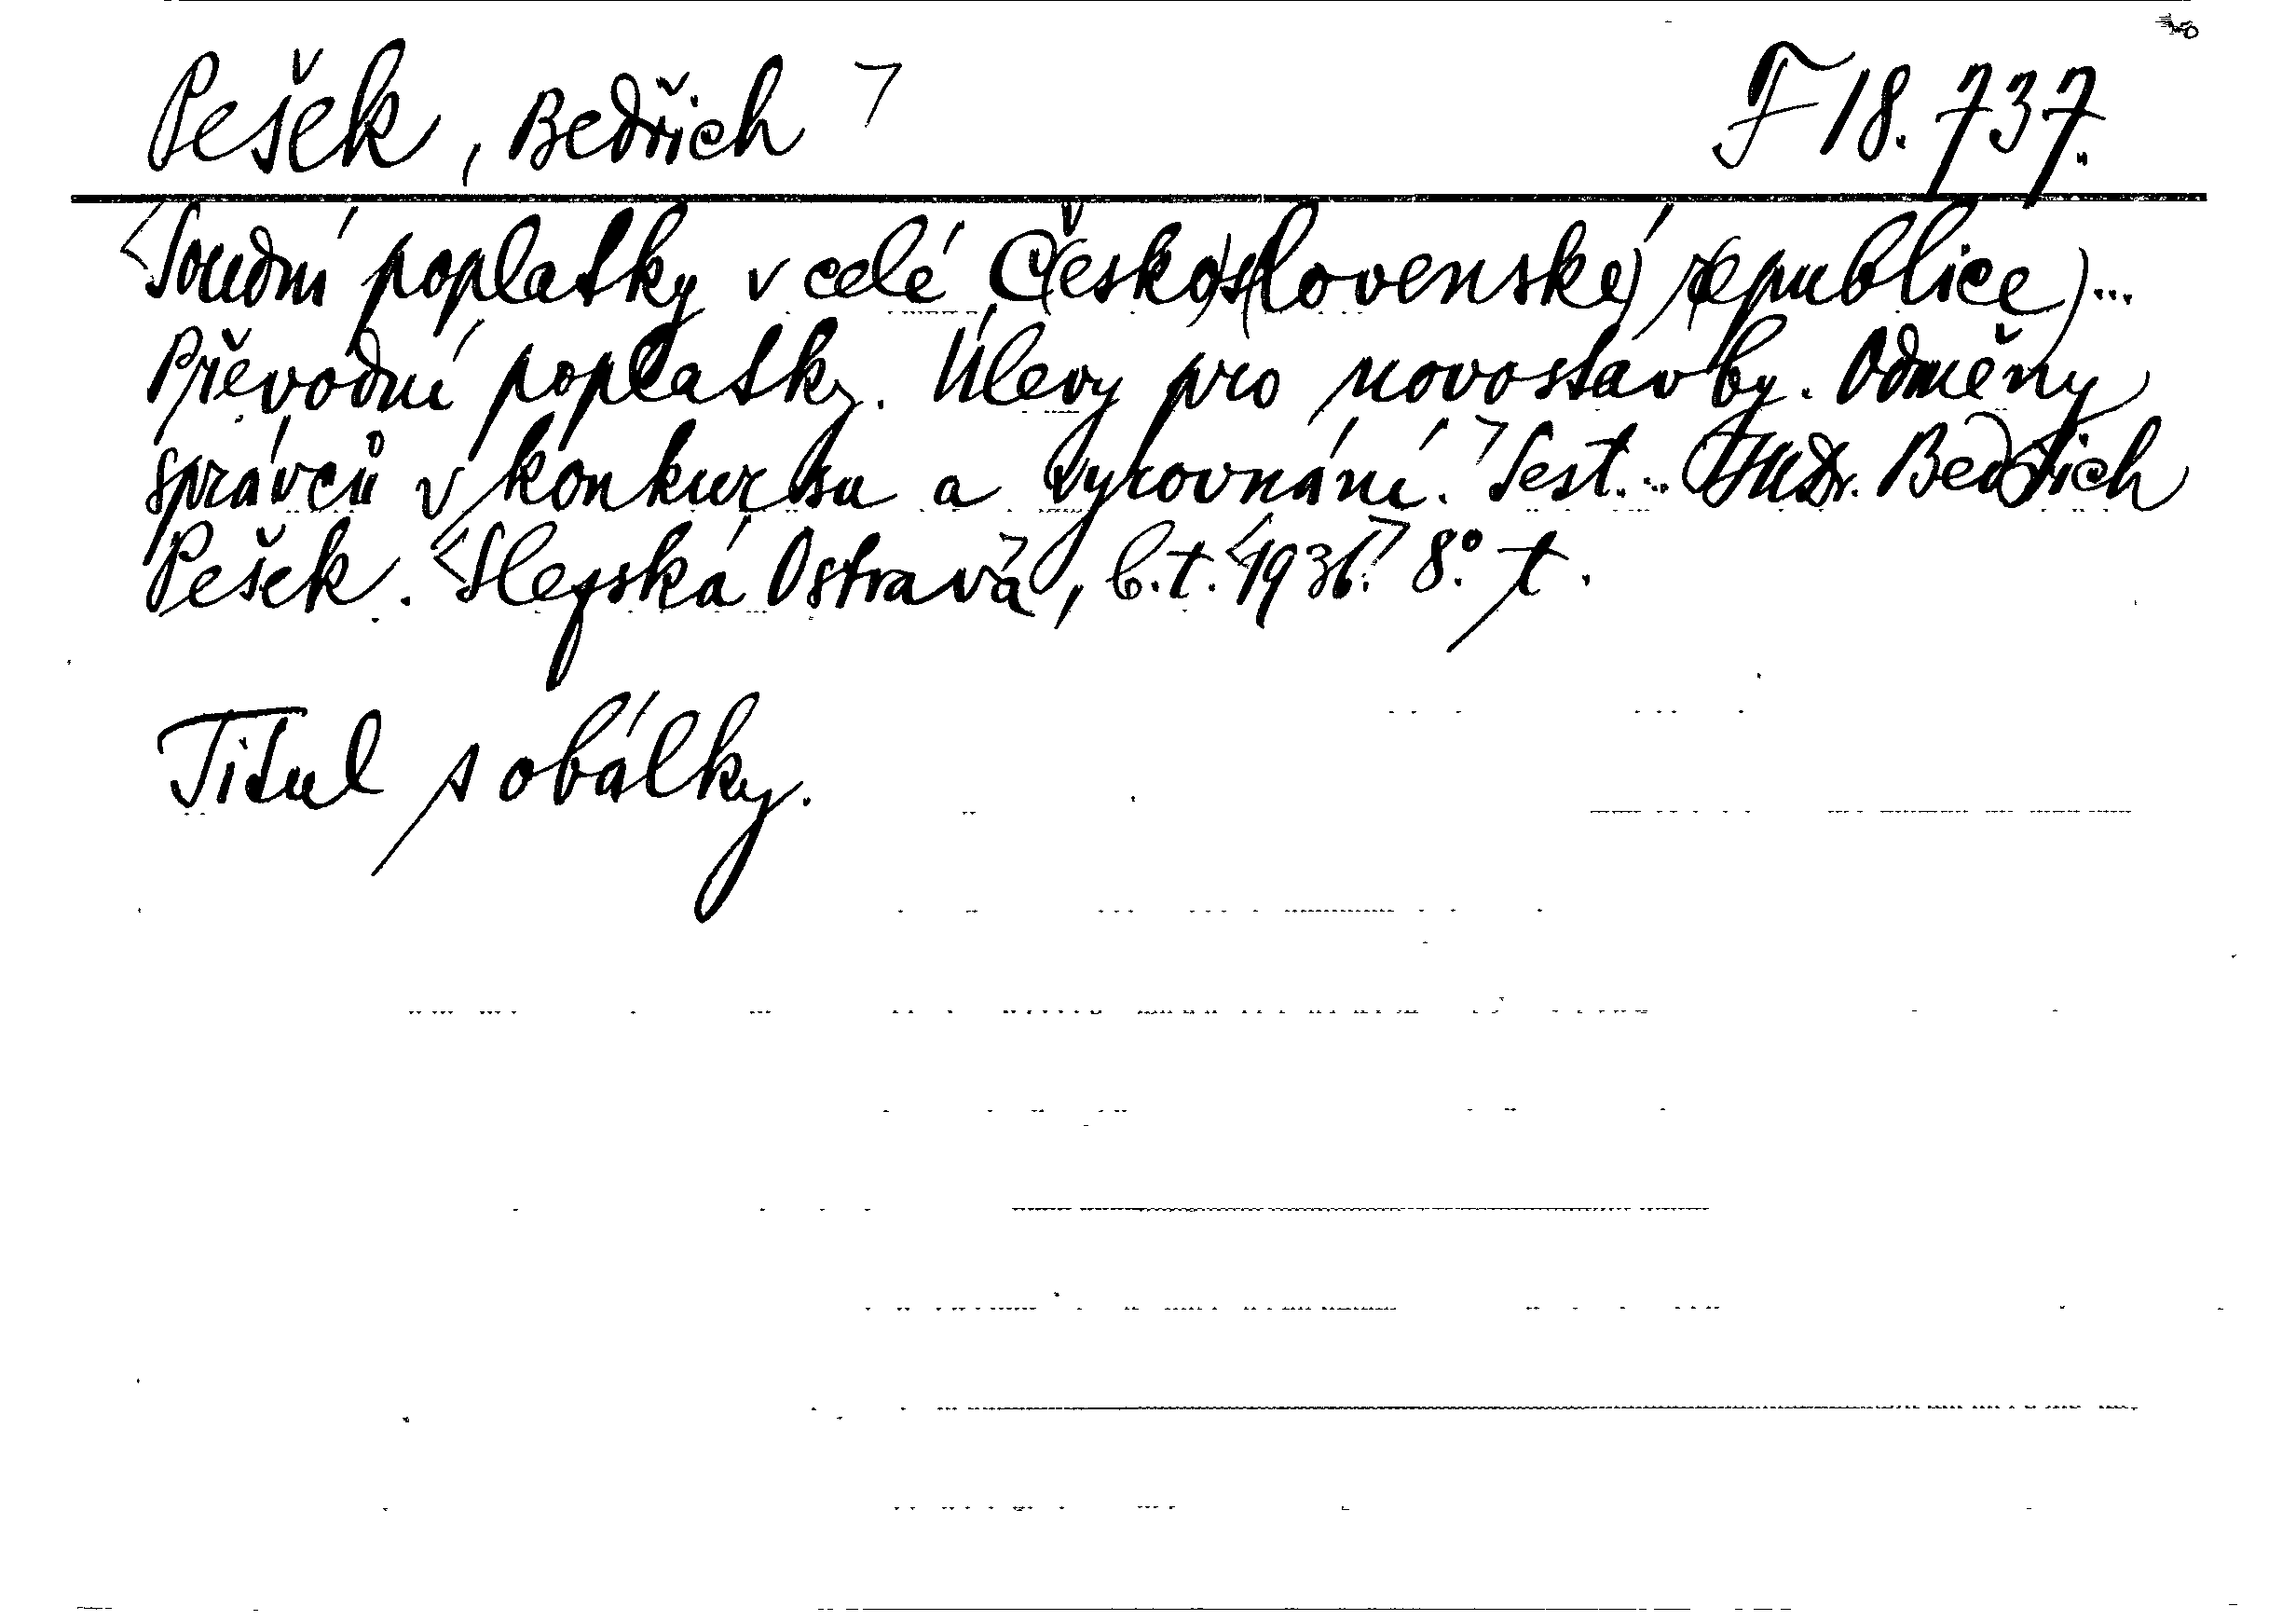 Pešek, Bedřich F 18.737.
Soudní poplatky v celé Č(esko)s(lovenské) r(epublice)...
Převodní poplatky. Úlevy pro novostavby. Odměny
správců v konkursu a vyrovnání. Sest... JUDr. Bedřich
Pešek. Slezská Ostrava, b.t. 1936. 8°. t.
Titul s obálky.